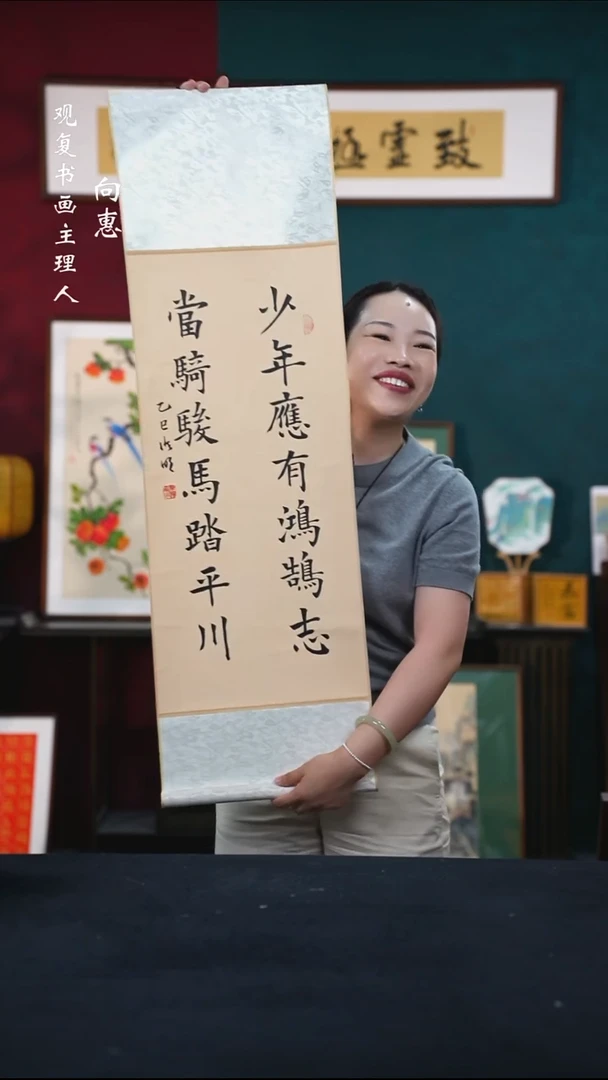 观复书画主理人
向惠
少年應有鴻鵠志
當騎駿馬踏平川
乙巳
致霊